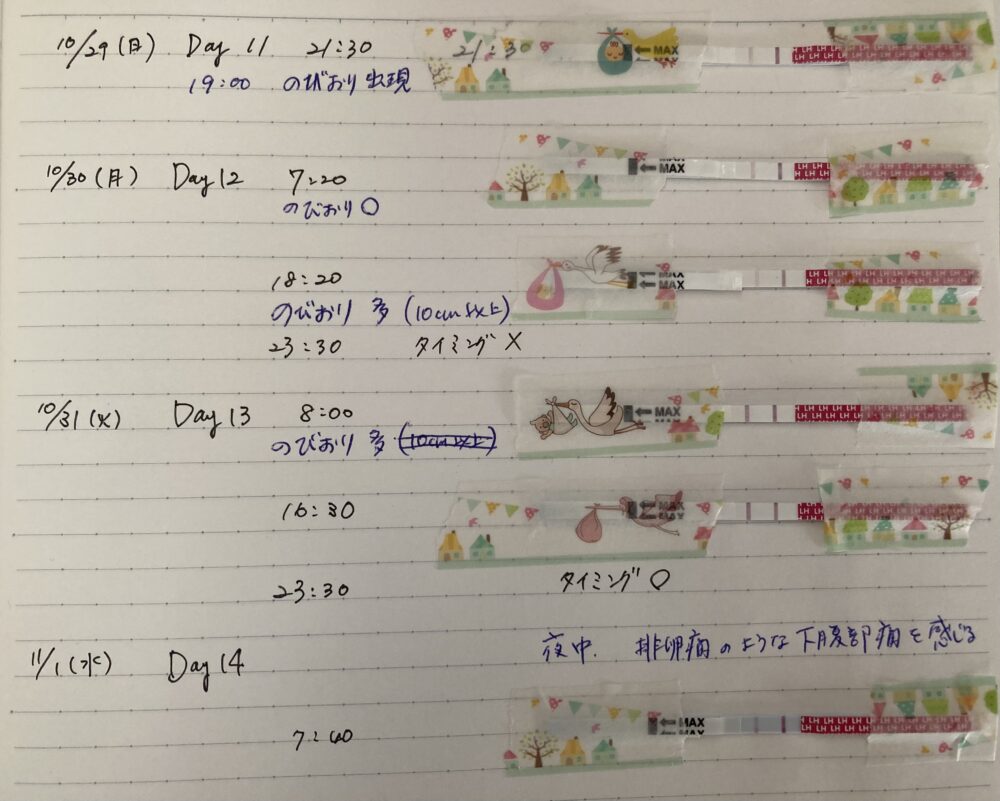 10/29(日) Day 11 21:30 21:30 MAX LH LH LH LH LH
19:00 のびおり出現
10/30(月) Day 12 7:20 MAX MAX LH LH LH LH LH
のびおり○
18:20 MAX MAX LH LH LH LH LH
のびおり 多 (10cm以上)
23:30 タイミング×
10/31(火) Day 13 8:00 MAX MAX LH LH LH LH LH
のびおり 多 (10cm以上)
16:30 MAX MAX LH LH LH LH LH
23:30 タイミング○
夜中. 排卵痛のような下腹部痛を感じる
11/1(水) Day 14
7:40 MAX MAX LH LH LH LH LH